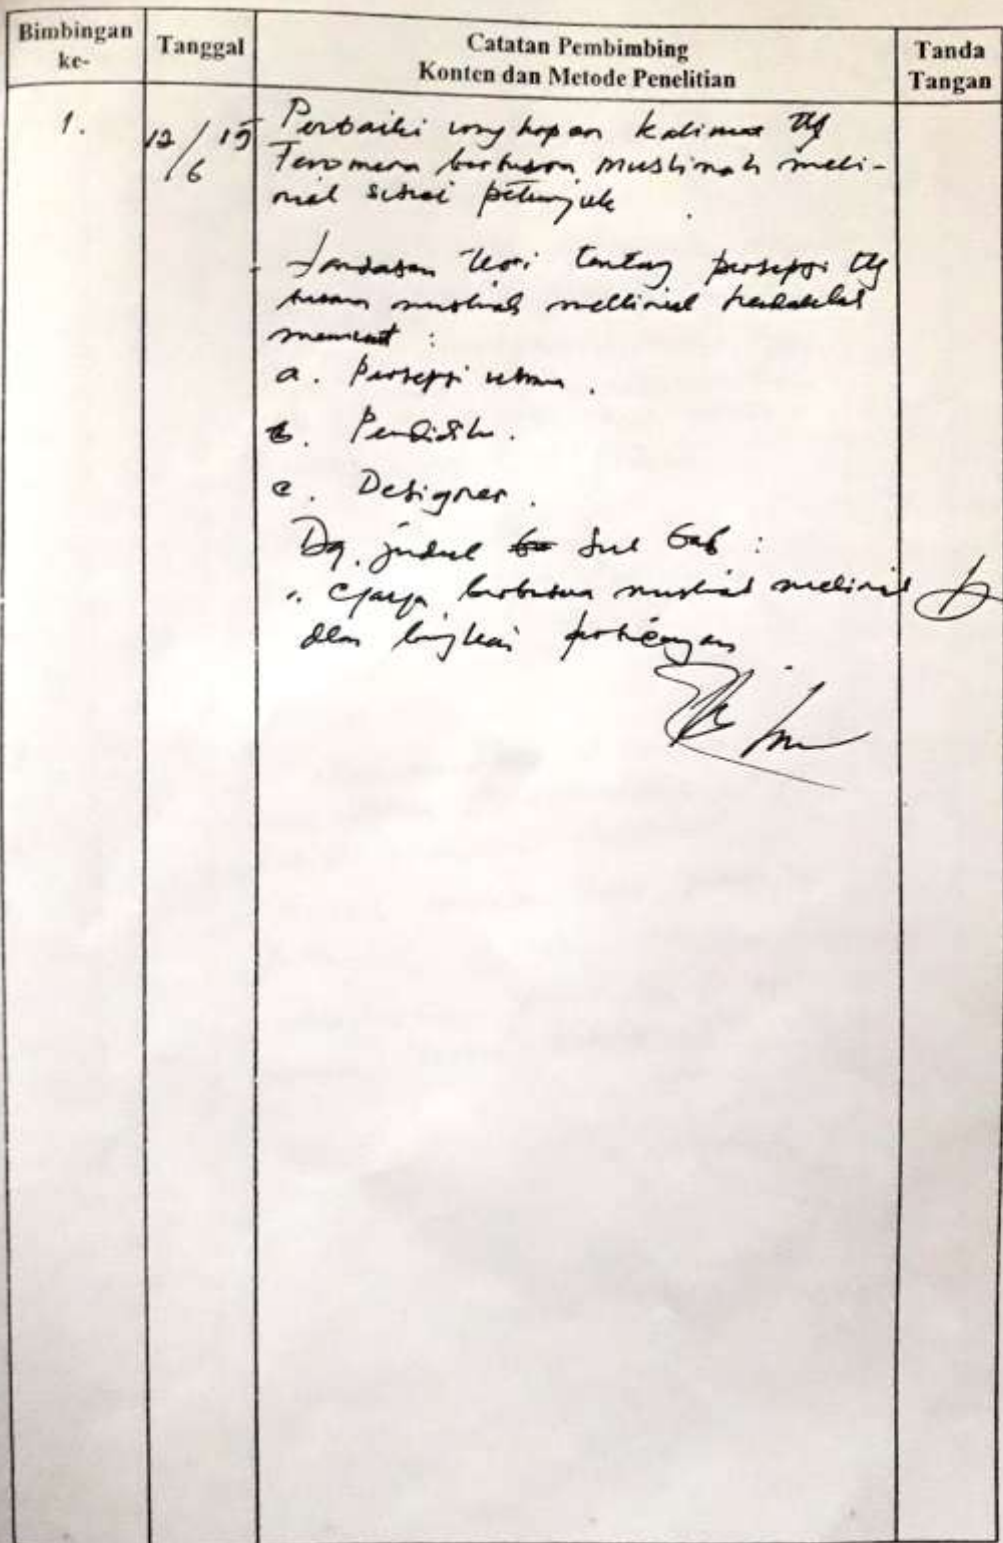 Bimbingan ke-
Tanggal
Catatan Pembimbing
Konten dan Metode Penelitian
Tanda Tangan
1.
12/6 19
Perbaiki ungkapan kalimat ttg
Fenomena berbusana muslimah meli-
nial sesuai petunjuk.
- Landasan teori tentang persepsi ttg
busana muslimah mellinial
menurut :
a. Persepsi
b. Pendidik.
c. Designer.
Dg. judul Sub bab :
" Gaya berbusana muslimah mellinial
dlm bingkai